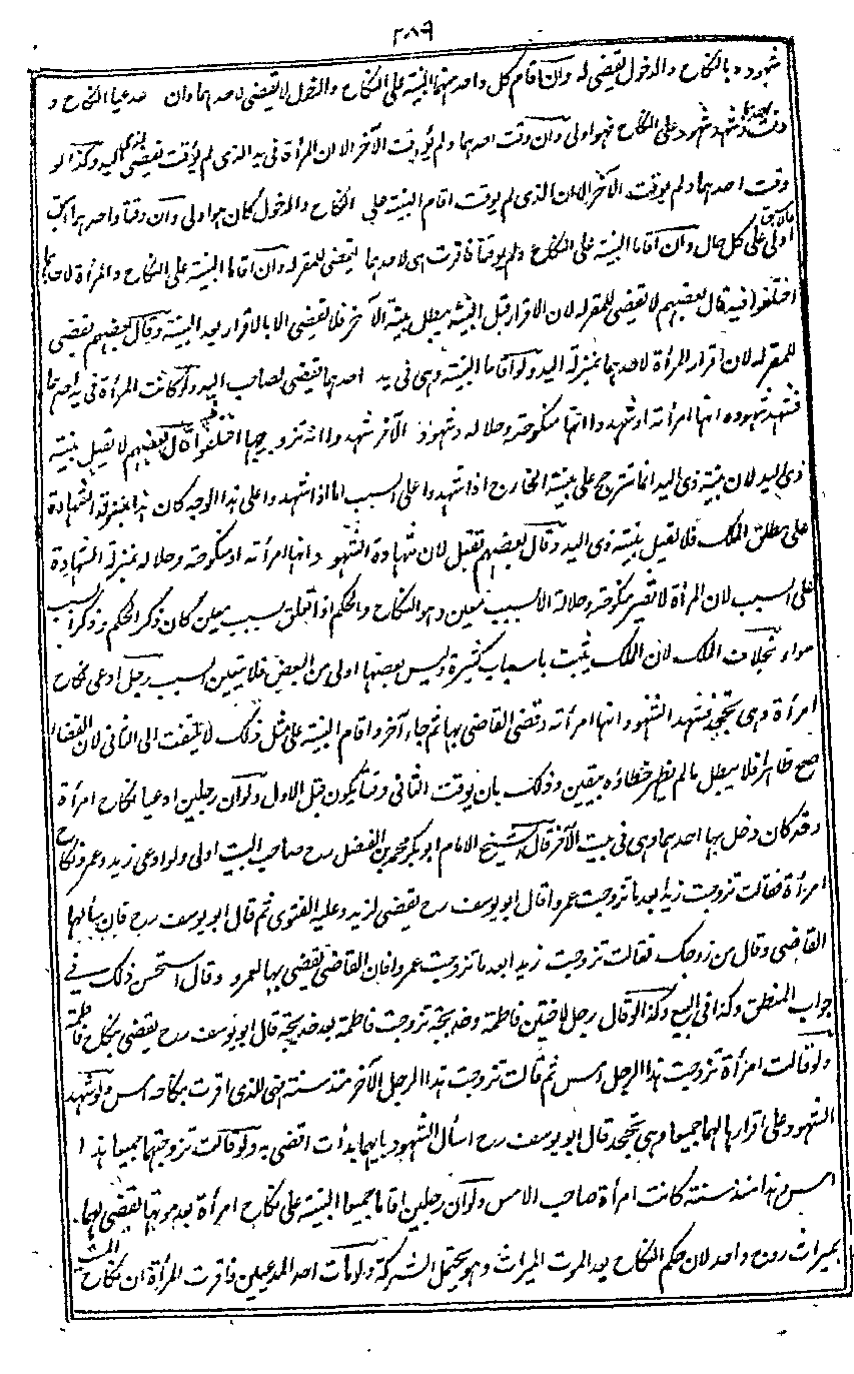 ٢٨٩
شهوده بالنكاح والدخول يقضى له وان اقام كل واحد منهما البينة على النكاح والدخول لا يقضى لاحدهما وان ادعيا النكاح و
وقت احدهما وشهد شهود على النكاح فهو اولى وان وقت احدهما ولم يوقت الآخر الا ان المرأة فى يد الذى لم يوقت يقضى لذى اليد وكذا لو
وقت احدهما ولم يوقت الآخر الا ان الذى لم يوقت اقام البينة على النكاح والدخول كان هو اولى وان وقتا واحدهما اسبق
اولى على كل حال وان اقاما البينة على النكاح ولم يوقتا فاقرت هى لاحدهما يقضى للمقر له وان اقاما البينة على النكاح والمرأة
اختلفوا فيه قال بعضهم لا يقضى للمقر له لان الاقرار قبل البينة يبطل ببينة الآخر فلا يقضى الا بالاقرار بعد البينة وقال بعضهم يقضى
للمقر له لان اقرار المرأة لاحدهما بمنزلة اليد ولو اقاما البينة وهى فى يد احدهما يقضى لصاحب اليد ولو كانت المرأة فى يد احدهما
فشهد شهوده انها امرأته او شهدوا انها منكوحته وحلاله وشهود الآخر شهدوا انه تزوجها اختلفوا فيه قال بعضهم لا يقبل بينة
ذى اليد لان بينة ذى اليد انما تترجح على بينة الخارج اذا شهدوا على السبب اما اذا شهدوا على هذا الوجه كان هذا بمنزلة الشهادة
على مطلق الملك فلا تقبل بينة ذى اليد وقال بعضهم تقبل لان شهادة الشهود انها امرأته او منكوحته وحلاله بمنزلة الشهادة
على السبب لان المرأة لا تصير منكوحته وحلاله الا بسبب معين وهو النكاح والحكم اذا تعلق بسبب معين كان ذكر الحكم وذكر السبب
سواء بخلاف الملك لان الملك يثبت باسباب كثيرة وليس بعضها اولى من البعض فلا يتعين السبب رجل ادعى نكاح
امرأة وهى تجحد فشهد الشهود انها امرأته وقضى القاضى بها ثم جاء آخر واقام البينة على مثل ذلك لا يلتفت الى الثانى لان القضاء
صح ظاهرا فلا يبطل ما لم يظهر خطاؤه بيقين وذلك بان يوقت الثانى وقتا يكون قبل الاول ولو ان رجلين ادعيا نكاح امرأة
وقد كان دخل بها احدهما وهى فى بيت الآخر قال الشيخ الامام ابو بكر محمد بن الفضل رح صاحب البيت اولى ولو ادعى زيد وعمرو نكاح
امرأة فقالت تزوجت زيدا بعد ما تزوجت عمروا قال ابو يوسف رح يقضى لزيد وعليه الفتوى ثم قال ابو يوسف رح فان سألها
القاضى وقال من زوجك فقالت تزوجت زيدا بعد ما تزوجت عمروا فان القاضى يقضى بها لعمرو وقال استحسن ذلك فى
جواب المنطق وكذا فى البيع وكذا لو قال رجل لاختين فاطمة وخديجة تزوجت فاطمة بعد خديجة قال ابو يوسف رح يقضى بنكاح فاطمة
ولو قالت امرأة تزوجت هذا الرجل امس ثم قالت تزوجت هذا الرجل الآخر منذ سنة فهى للذى اقرت بنكاحه امس ولو شهد
الشهود على اقرارها لهما جميعا وهى تجحد قال ابو يوسف رح اسأل الشهود بايهما بدأت اقضى به ولو قالت تزوجتهما جميعا هذا
امس وهذا منذ سنة كانت امرأة صاحب الامس ولو ان رجلين اقاما جميعا البينة على نكاح امرأة بعد موتها يقضى لهما
بميراث زوج واحد لان حكم النكاح بعد الموت الميراث وهو يحتمل الشركة ولو مات احد المدعيين فاقرت المرأة ان نكاح الميت